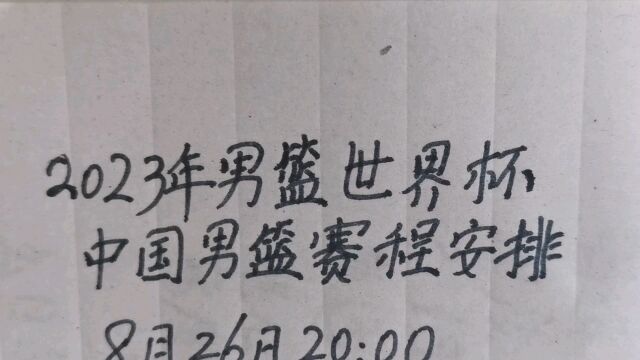 2023年男篮世界杯
中国男篮赛程安排
8月26日20:00